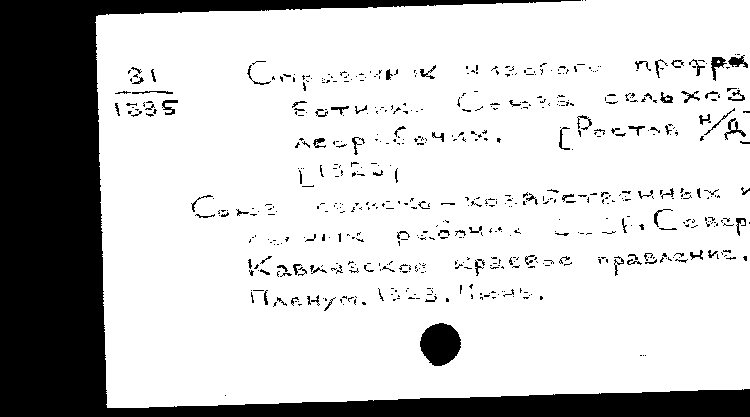 31
1335
Справочник низового профра
ботника Союза сельхоз
лесрабочих. [Ростов н/Д]
[1923]
Союз сельско-хозяйственных и
лесных рабочих СССР. Север
Кавказское краевое правление.
Пленум. 1923. Июнь.